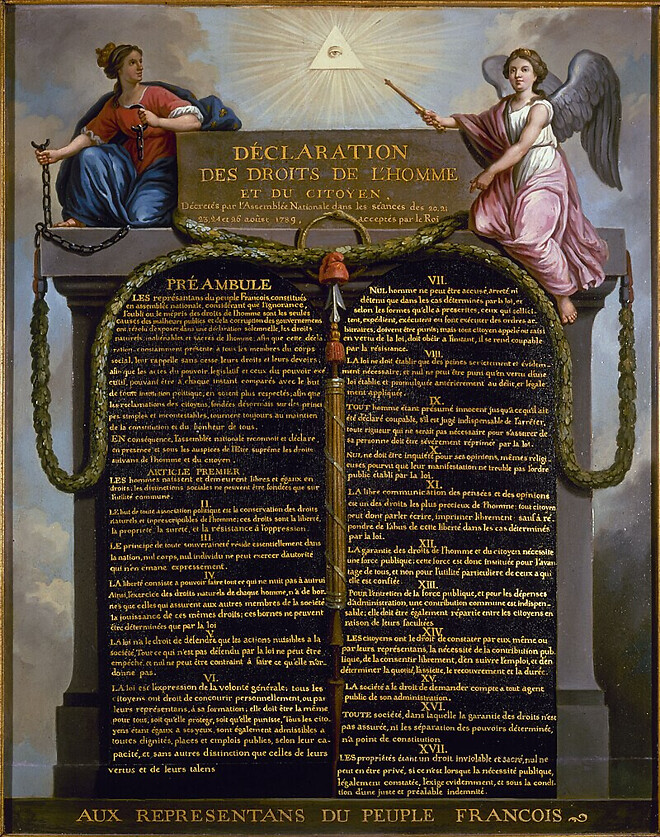 DÉCLARATION
DES DROITS DE L'HOMME
ET DU CITOYEN,
Décrétés par l'Assemblée Nationale dans les séances des 20, 21
23, 24 et 26 août 1789, acceptés par le Roi
PRÉAMBULE
LES représantans du peuple Francois, constitués
en assemblée nationale, considérant que l'ignorance,
l'oubli ou le mépris des droits de l'homme sont les seules
causes des malheurs publics et de la corruption des gouvernemens
ont résolu d'exposer dans une déclaration solemnelle, les droits
naturels, inaliénables et sacrés de l'homme, afin que cette décla-
ration, constamment présente a tous les membres du corps
social, leur rappelle sans cesse leurs droits et leurs devoirs;
afin que les actes du pouvoir législatif et ceux du pouvoir exé-
cutif, pouvant être à chaque instant comparés avec le but
de toute institution politique, en soient plus respectés; afin que
les reclamations des citoyens, fondées désormais sur des prince-
pes simples et incontestables, tournent toujours au maintien
de la constitution et du bonheur de tous.
EN conséquence, l'assemblée nationale reconnoit et déclare,
en presence et sous les auspices de l'Etre suprême les droits
suivans de l'homme et du citoyen.
ARTICLE PREMIER
LES hommes naissent et demeurent libres et égaux en
droits; les distinctions sociales ne peuvent être fondées que sur
l'utilité commune.
II.
LE but de toute association politique est la conservation des droits
naturels et inprescriptibles de l'homme; ces droits sont la liberté,
la propriété, la sureté, et la résistance à l'oppression.
III.
LE principe de toute souveraineté réside essentiellement dans
la nation, nul corps, nul individu ne peut exercer d'autorité
qui n'en émane expressement.
IV.
LA liberté consiste a pouvoir faire tout ce qui ne nuit pas à autrui
Ainsi, l'exercice des droits naturels de chaque homme, n'a de bor-
nes que celles qui assurent aux autres membres de la société
la jouissance de ces mêmes droits; ces bornes ne peuvent
être déterminées que par la loi
V.
LA loi n'a le droit de défendre que les actions nuisibles à la
société. Tout ce qui n'est pas défendu par la loi ne peut être
empêché, et nul ne peut être contraint à faire ce qu'elle n'or-
donne pas.
VI.
LA loi est l'expression de la volonté générale; tous les
citoyens ont droit de concourir personnellement, ou par
leurs représentans, à sa formation; elle doit être la même
pour tous, soit qu'elle protege, soit qu'elle punisse. Tous les cito-
yens étant égaux à ses yeux, sont également admissibles à
toutes dignités, places et emplois publics, selon leur ca-
pacité, et sans autres distinction que celles de leurs
vertus et de leurs talens
VII.
NUL homme ne peut être accusé, arreté ni
détenu que dans les cas déterminés par la loi, et
selon les formes qu'elle a prescrites, ceux qui sollici-
tent, expédient, exécutent ou font exécuter des ordres ar-
bitraires, doivent être punis; mais tout citoyen appelé ou saisi
en vertu de la loi, doit obéir a l'instant, il se rend coupable
par la résistance.
VIII.
LA loi ne doit établir que des peines strictement et évidem-
ment nécessaire, et nul ne peut être puni qu'en vertu d'une
loi établie et promulguée antérieurement au délit, et légale-
ment appliquée.
IX.
TOUT homme étant présumé innocent jusqu'a ce qu'il ait
été déclaré coupable, s'il est jugé indispensable de l'arrêter,
toute rigueur qui ne serait pas nécessaire pour s'assurer de
sa personne doit être sévèrement réprimée par la loi.
X.
NUL ne doit être inquiété pour ses opinions, mêmes religi-
euses pourvu que leur manifestation ne trouble pas l'ordre
public établi par la loi.
XI.
LA libre communication des pensées et des opinions
est un des droits les plus precieux de l'homme: tout citoyen
peut dont parler écrire, imprimer librement: sauf à ré-
pondre de l'abus de cette liberté dans les cas déterminés
par la loi.
XII.
LA garantie des droits de l'homme et du citoyen nécessite
une force publique; cette force est donc instituée pour l'avan-
tage de tous, et non pour l'utilité particuliere de ceux a qui
elle est confiée.
XIII.
Pour l'entretien de la force publique, et pour les dépenses
d'administration, une contribution commune est indispen-
sable; elle doit être également répartie entre les citoyens en
raison de leurs facultées
XIV.
LES citoyens ont le droit de constater par eux même ou
par leurs représentans, la nécessité de la contribution pub-
lique, de la consentir librement, d'en suivre l'emploi, et d'en
déterminer la quotité, l'assiette, le recouvrement et la durée.
XV.
LA société a le droit de demander compte a tout agent
public de son administration.
XVI.
TOUTE société, dans laquelle la garantie des droits n'est
pas assurée, ni la séparation des pouvoirs déterminée,
n'a point de constitution
XVII.
LES propriétés étant un droit inviolable et sacré, nul ne
peut en être privé, si ce n'est lorsque la nécessité publique,
légalement constatée, l'exige evidemment, et sous la condi-
tion d'une juste et préalable indemnité.
AUX REPRESENTANS DU PEUPLE FRANCOIS